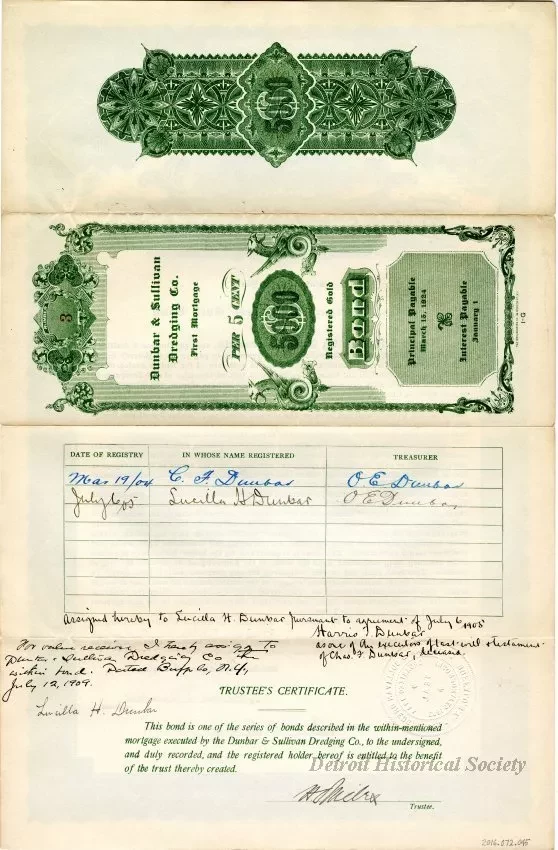 5000
3
Dunbar & Sullivan
Dredging Co.
First Mortgage
PER 5 CENT
5000
Registered Gold
Bond
Principal Payable
March 15, 1924
Interest Payable
January 1
DATE OF REGISTRY IN WHOSE NAME REGISTERED TREASURER
Mar 19/04 C. F. Dunbar O E Dunbar
July 6/05 Lucilla H Dunbar O E Dunbar
Assigned hereby to Lucilla H. Dunbar pursuant to agreement of July 6 1905
Harris T Dunbar
as one of the executors of last will & testament
of Chas. F Dunbar, deceased
For value received I hereby assign to
Dunbar & Sullivan Dredging Co the
within bond. Dated Buffalo, N.Y.,
July 12, 1909.
Lucilla H. Dunbar
TRUSTEE'S CERTIFICATE.
This bond is one of the series of bonds described in the within-mentioned
mortgage executed by the Dunbar & Sullivan Dredging Co., to the undersigned,
and duly recorded, and the registered holder hereof is entitled to the benefit
of the trust thereby created.
Detroit Historical Society
Trustee.
2016.072.045